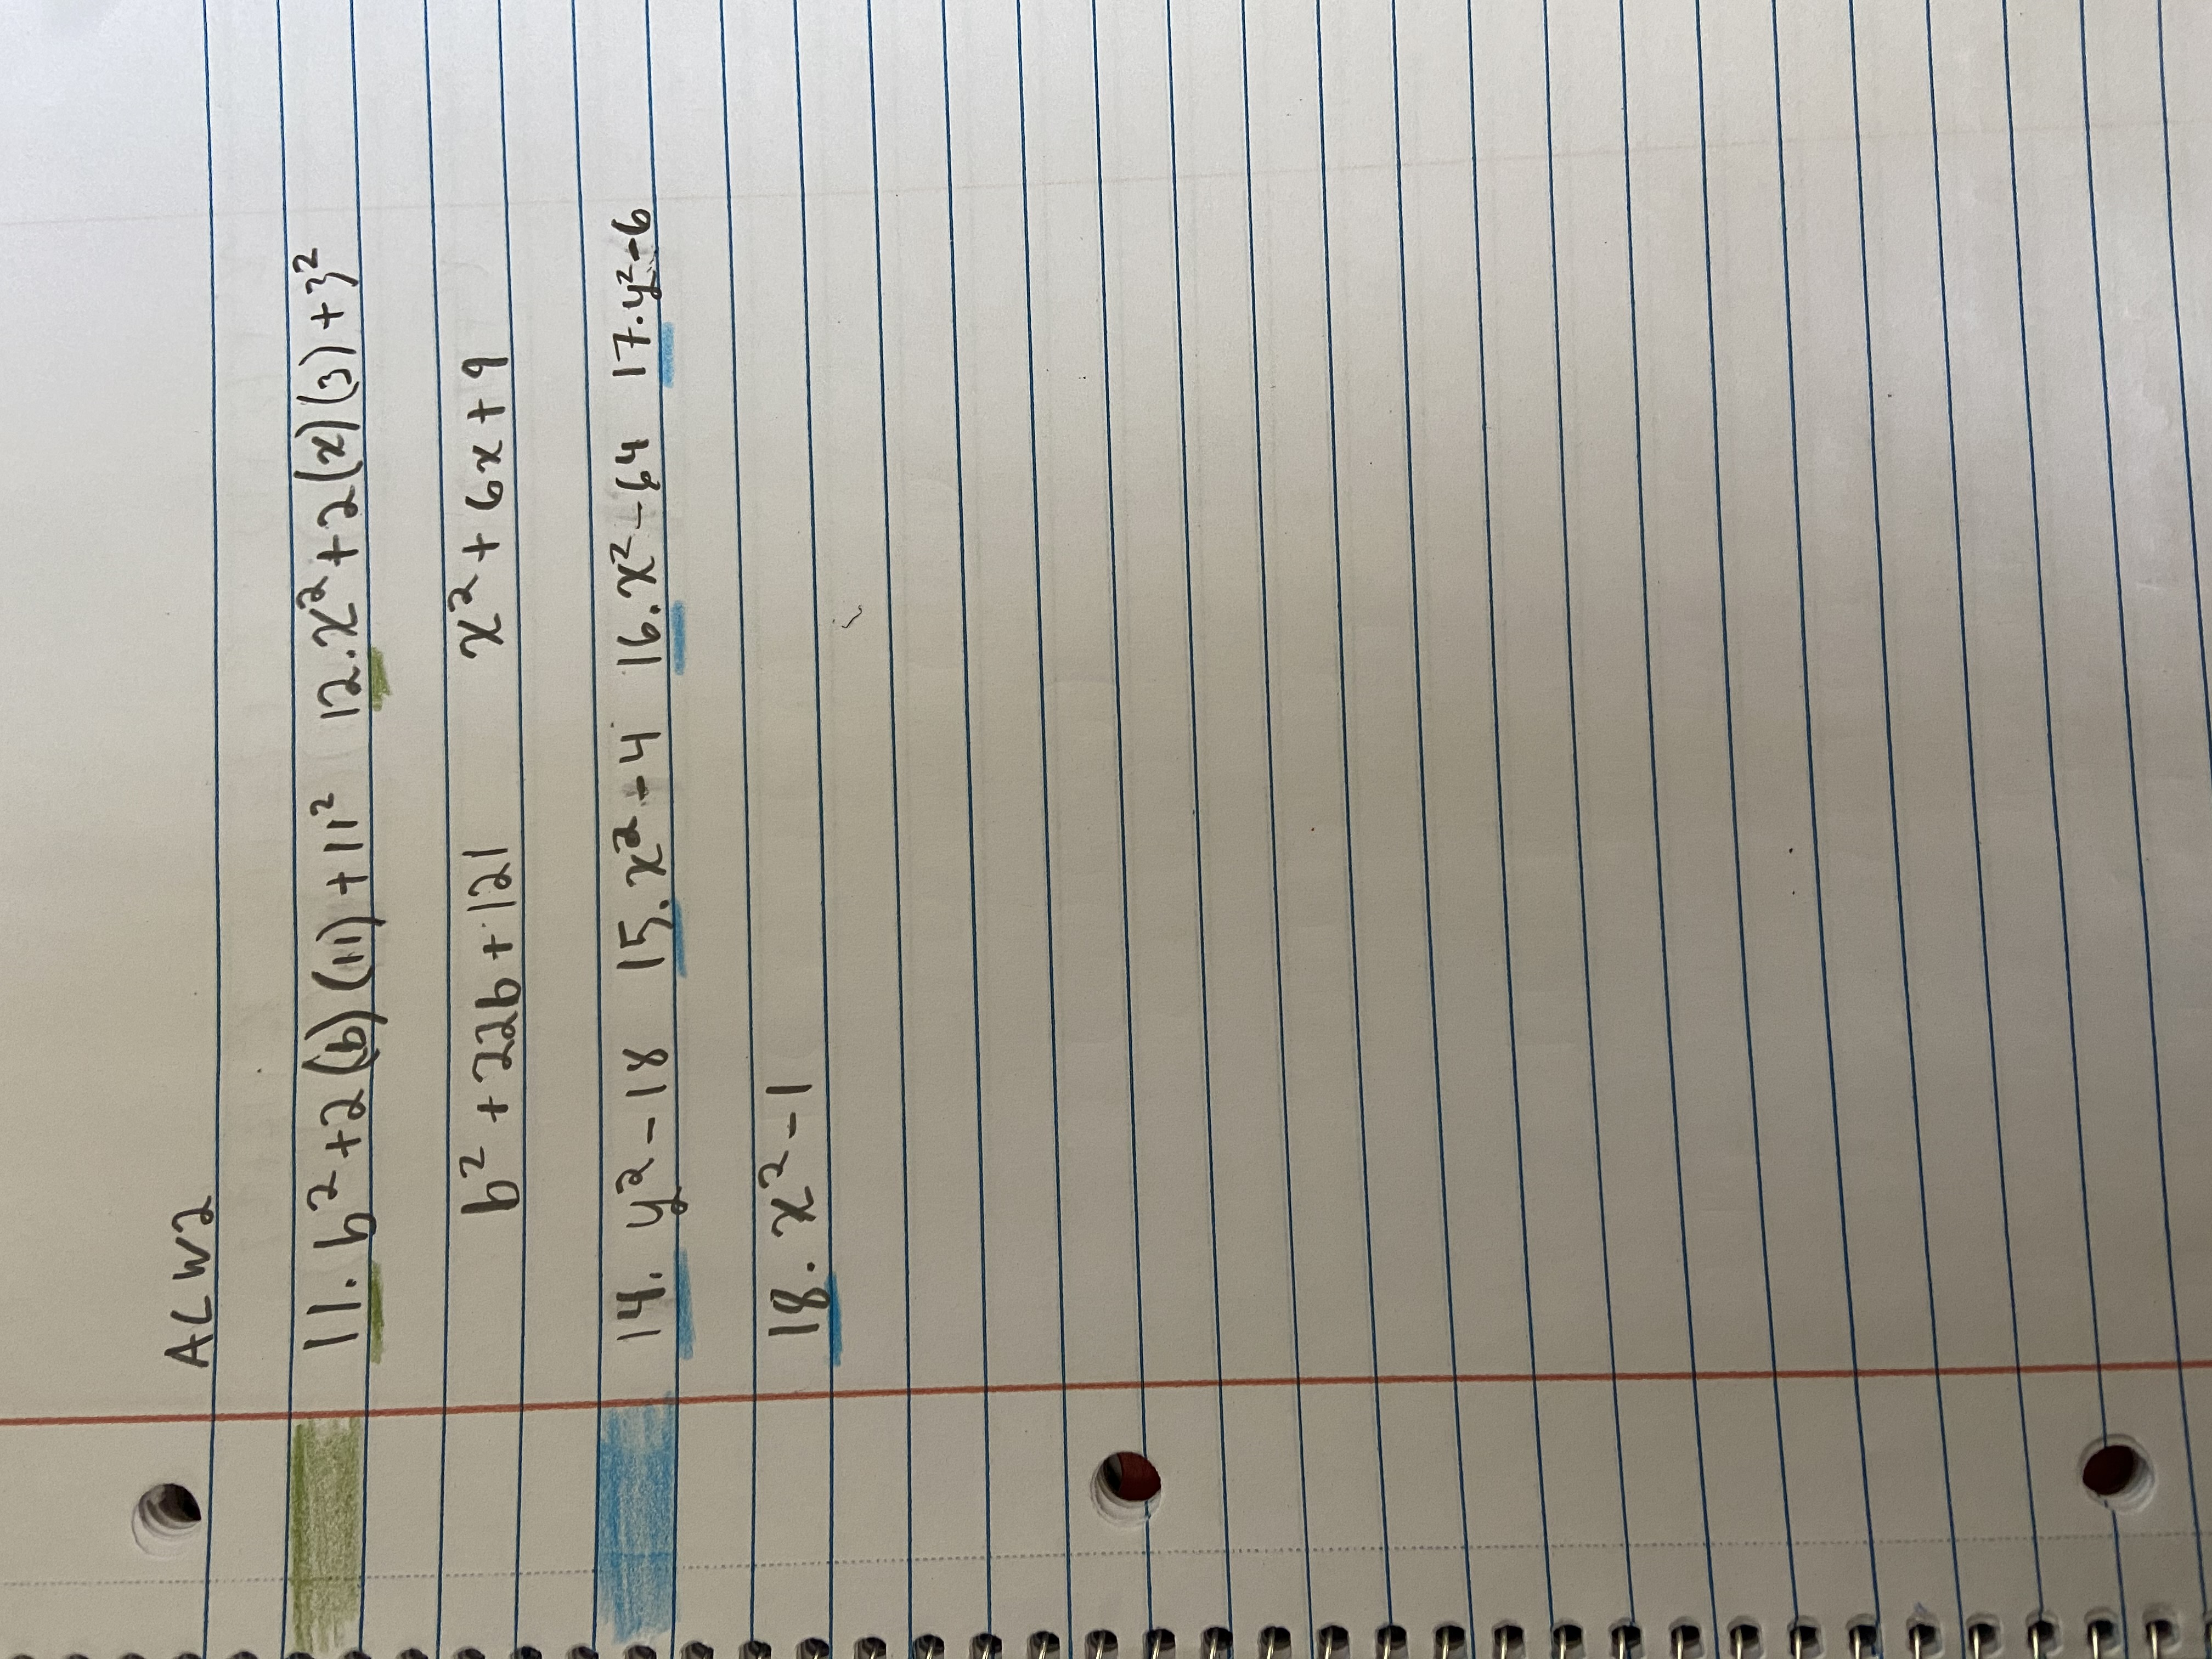 ALW2
11. b² + 2(b)(11) + 11² 12. x² + 2(x)(3) + 3²
b² + 22b + 121 x² + 6x + 9
14. y² - 18 15. x² - 4 16. x² - 64 17. y² - 6
18. x² - 1